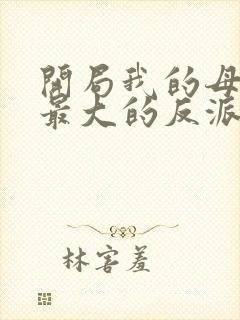 開局我的母
最大的反派
林害羞